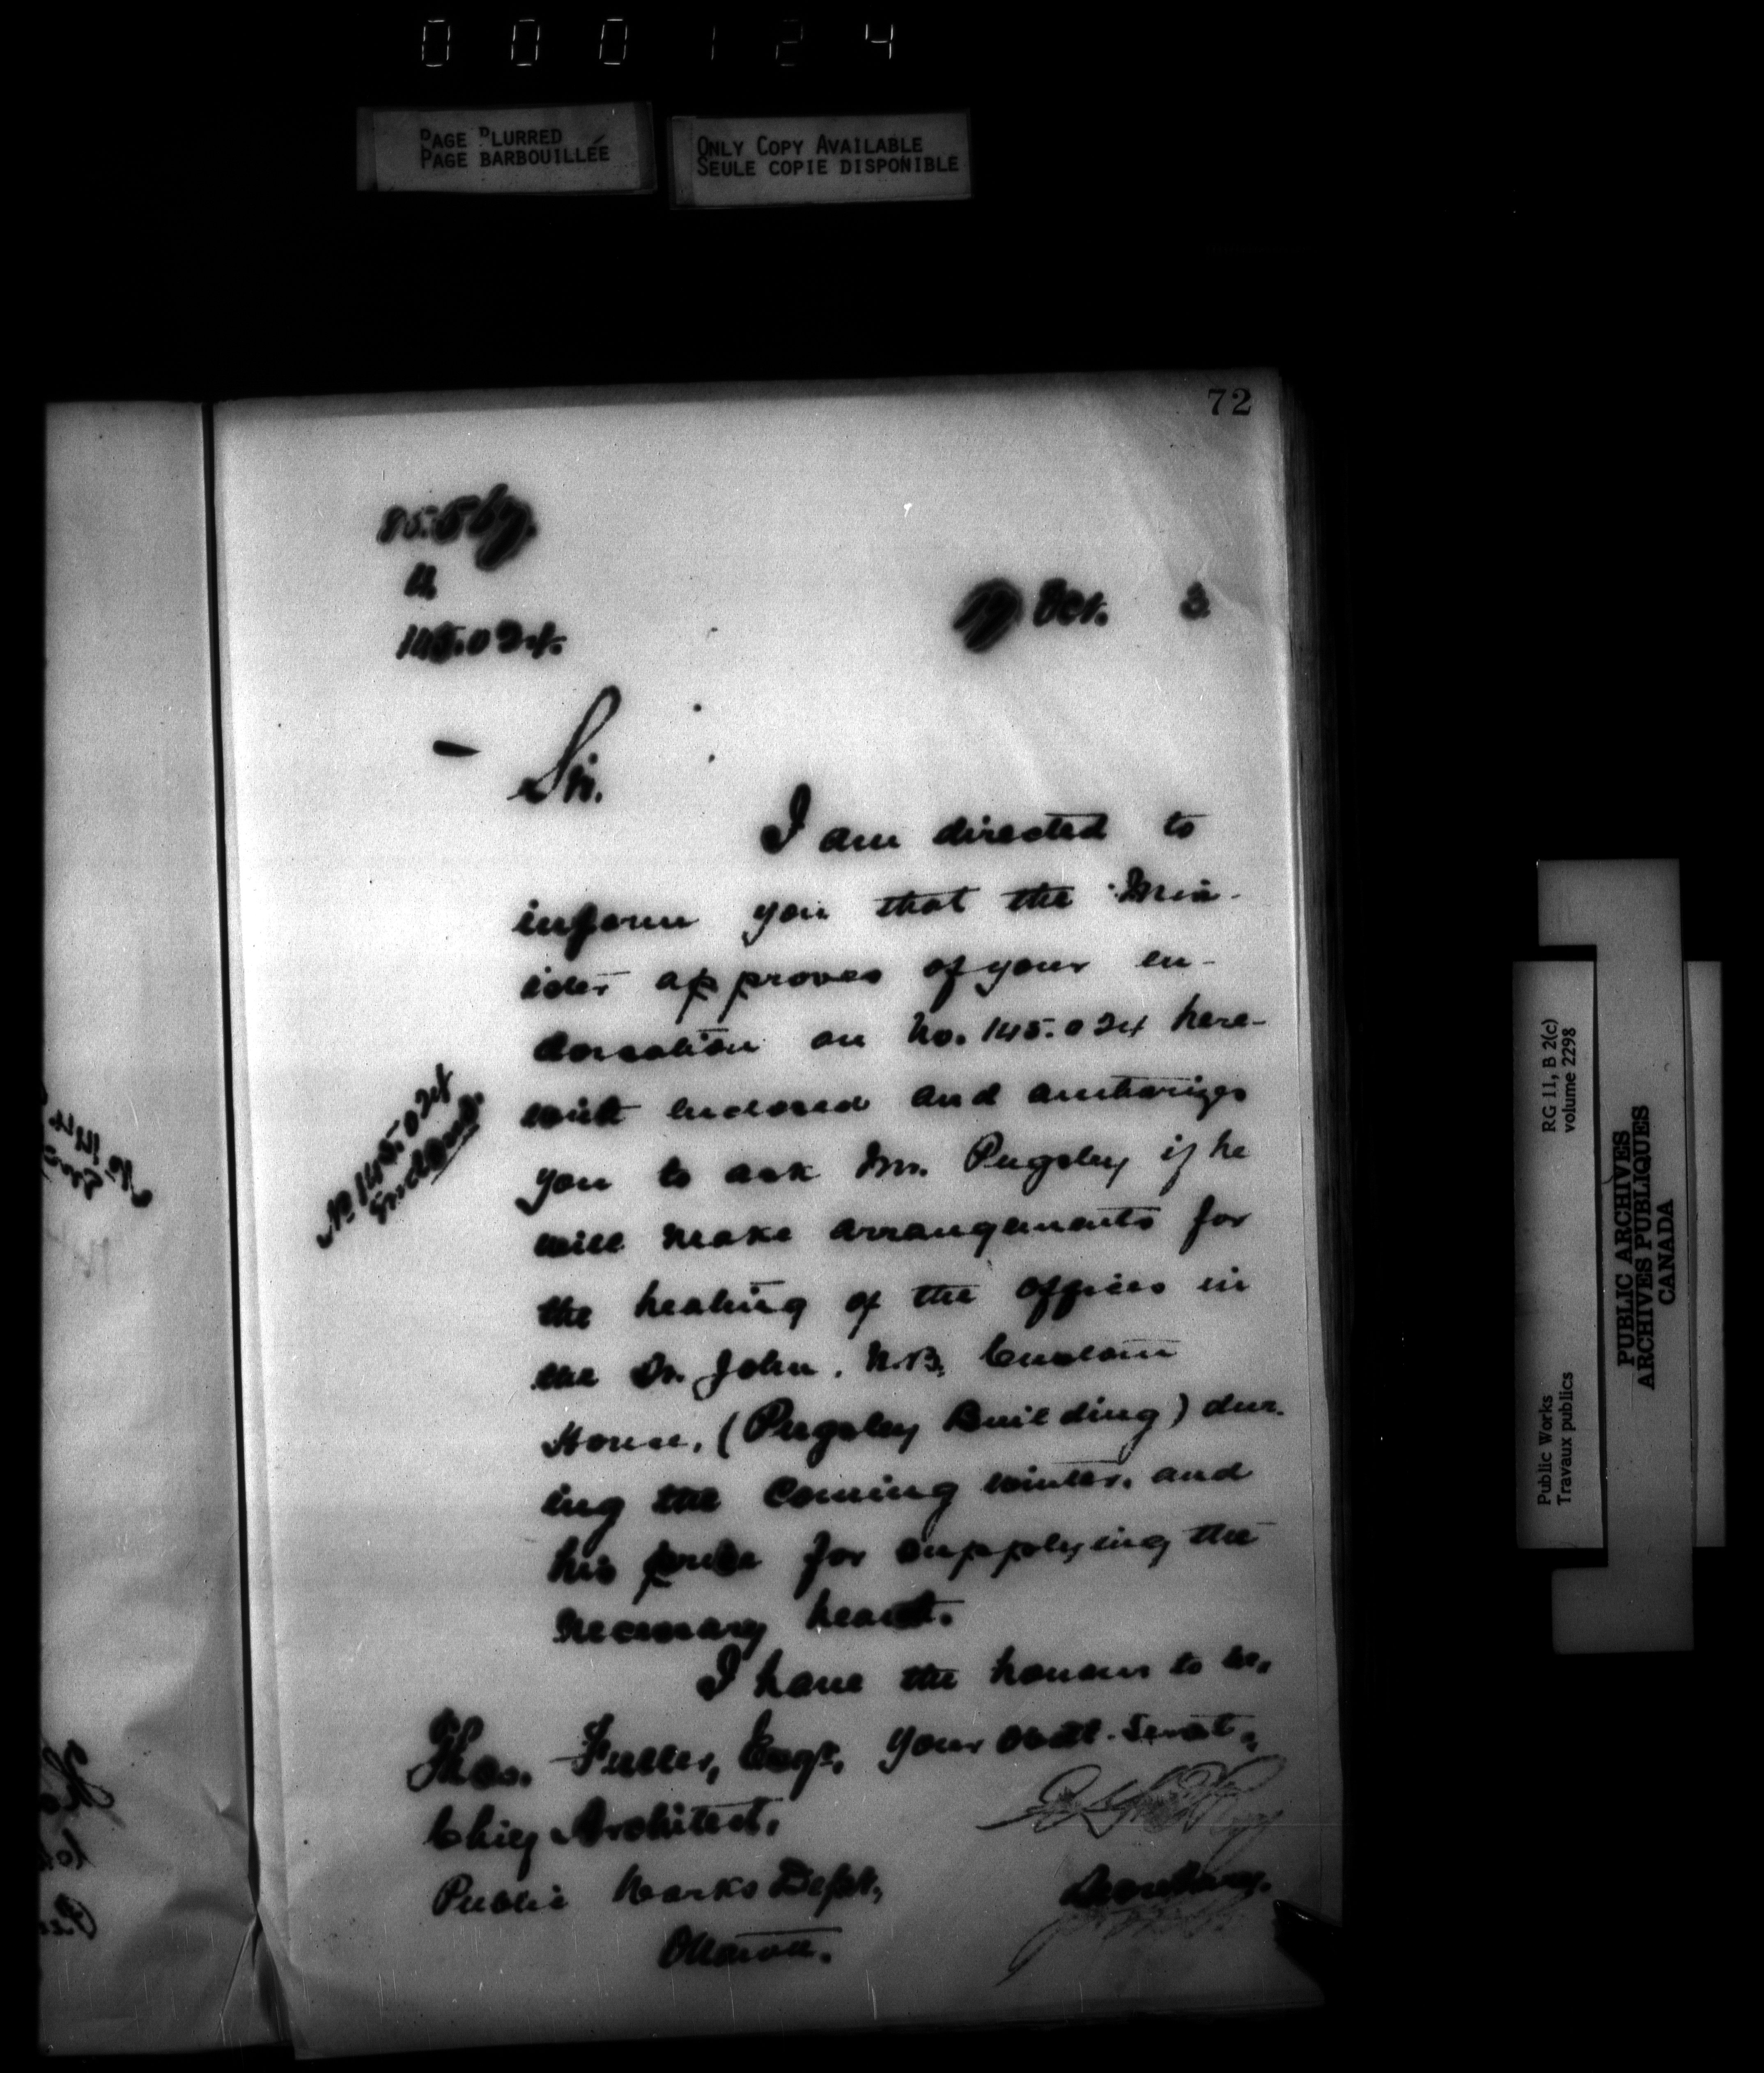 000124
PAGE BLURRED
PAGE BARBOUILLÉE
ONLY COPY AVAILABLE
SEULE COPIE DISPONIBLE
72
85.567.
a
145.024.
19 Oct. 3
Sir.
I am directed to
inform you that the Min-
ister approves of your en-
dorsation on No. 145.024 here-
with enclosed and authorizes
you to ask Mr. Pugsley if he
will make arrangements for
the heating of the offices in
the St. John. N.B. Custom
House, (Pugsley Building) dur-
ing the coming winter, and
his price for supplying the
necessary heat.
No 145.024
Enclosed.
I have the honour to be,
Thos. Fuller, Esqr, Your Obdt. Servt.,
Chief Architect,
Public Works Dept,
Secretary.
Ottawa.
Public Works
Travaux publics
RG 11, B 2(c)
volume 2298
PUBLIC ARCHIVES
ARCHIVES PUBLIQUES
CANADA